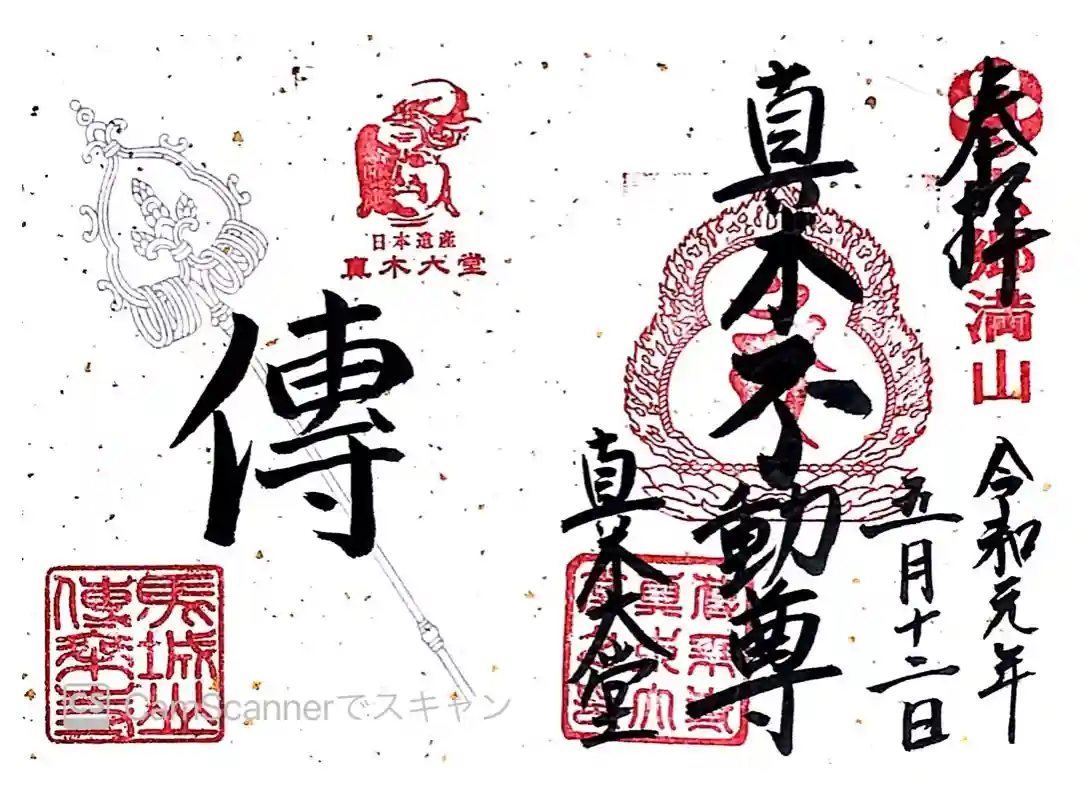 奉拝
六郷満山
令和元年
五月十二日
真木不動尊
真木大堂
日本遺産
真木大堂
傳
馬城山
傳乗寺
CamScannerでスキャン